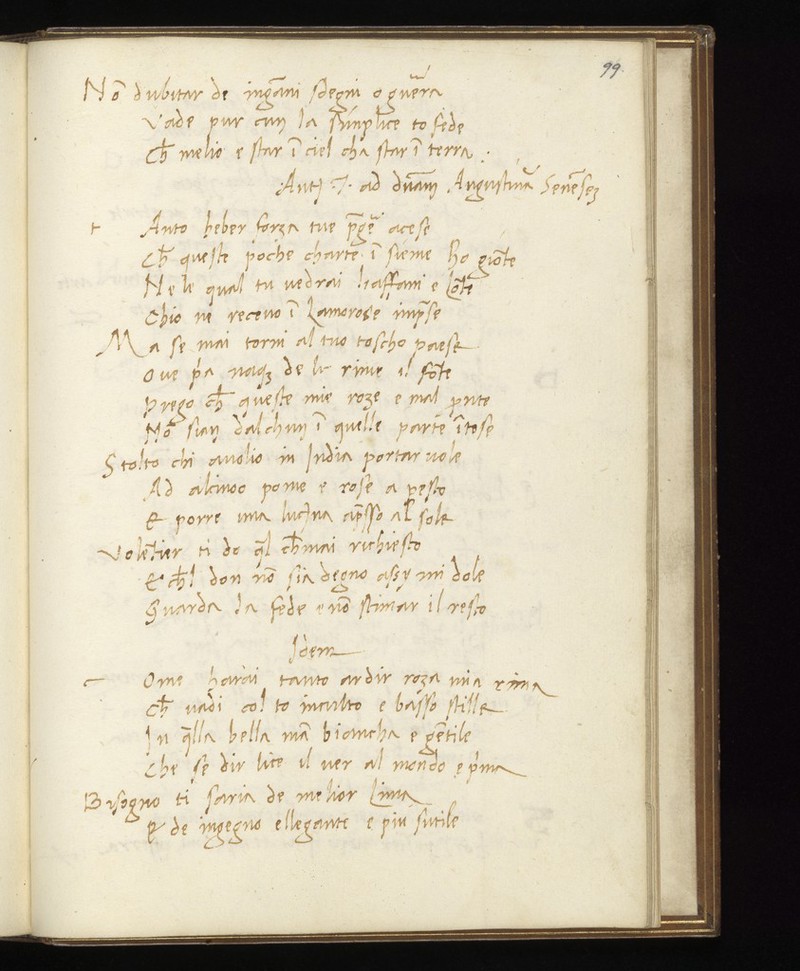 99.
Nō dubitar de ingāni sdegni o guēra
Vade pur cun la sīnplice to fede
Ch̄ melio e star ī ciel cha star ī terra
Ant. T. ad duām Augustinā Senēsez
t Anto heber forza tue p̄gē acese
Ch̄ queste poche charte ī sieme ho giōte
Ne le qual tu vedrai li affani e lōte
Chio ne recevo ī Lamorose imp̄se
Ma se mai torni al tuo toscho paese
Ove p̄a naqz de le rime il fōte
Prego ch̄ queste mie roze e mal pn̄te
Nō sian dalchun ī quelle parte ītese
Stolto chi avolio in India portar vole
Ad alcinoo pome e rose a pesto
& porre una lucīna ap̄sso al sole
Volētier ti do q̄l ch̄mai richiesto
& ch̄l don nō sia degno assy mi dole
Guarda la fede e nō stimar il resto
Idem
c Ome harai tanto ardir roza mia rima
Ch̄ vadi col to inculto e basso stille
In q̄lla bella mā biancha e gētile
Che se dir lice il ver al mondo e p̄ma
Bisogno ti saria de melior Lima
& de ingegno ellegante e piu sutile